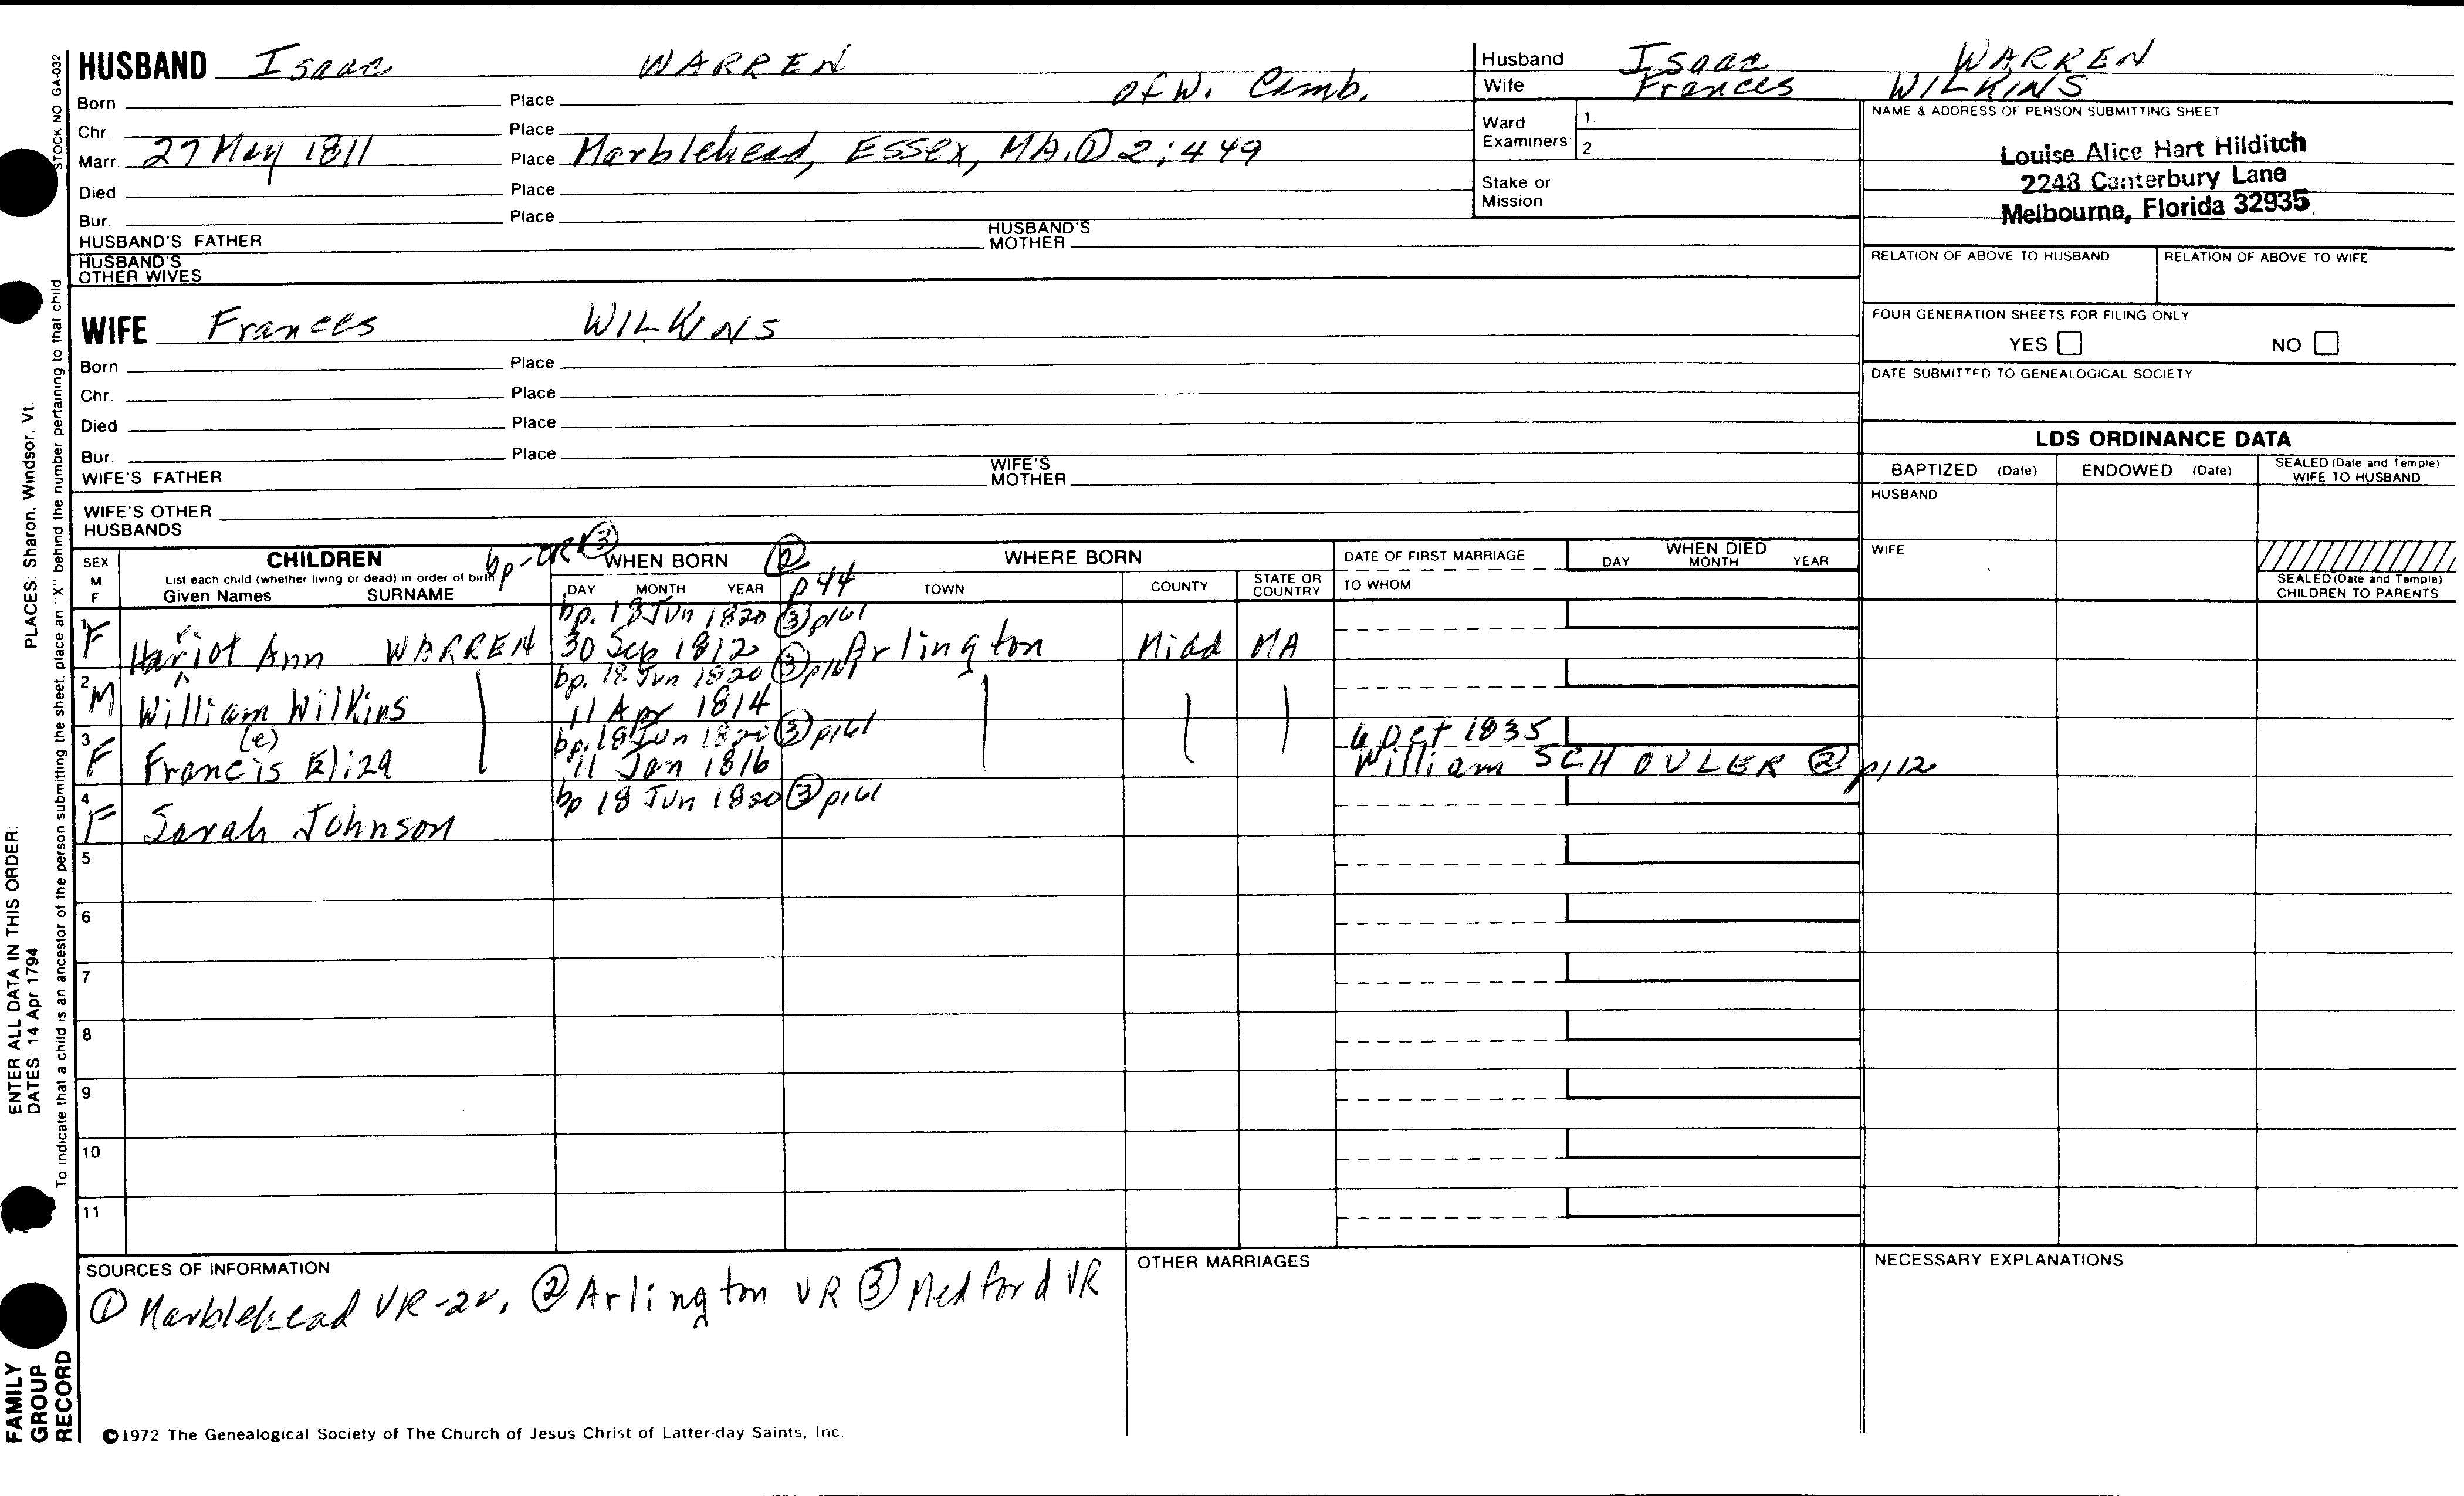 HUSBAND Isaac WARREN
Born Place of W. Camb.
Chr. Place
Marr. 27 May 1811 Place Marblehead, Essex, MA. ① 2:449
Died Place
Bur. Place
HUSBAND'S FATHER HUSBAND'S MOTHER
HUSBAND'S OTHER WIVES
Husband Isaac WARREN
Wife Frances WILKINS
Ward Examiners: 1. 2.
Stake or Mission
NAME & ADDRESS OF PERSON SUBMITTING SHEET
Louise Alice Hart Hilditch
2248 Canterbury Lane
Melbourne, Florida 32935
RELATION OF ABOVE TO HUSBAND RELATION OF ABOVE TO WIFE
FOUR GENERATION SHEETS FOR FILING ONLY
YES NO
DATE SUBMITTED TO GENEALOGICAL SOCIETY
WIFE Frances WILKINS
Born Place
Chr. Place
Died Place
Bur. Place
WIFE'S FATHER WIFE'S MOTHER
WIFE'S OTHER HUSBANDS
LDS ORDINANCE DATA
BAPTIZED (Date) ENDOWED (Date) SEALED (Date and Temple) WIFE TO HUSBAND
HUSBAND
WIFE
SEALED (Date and Temple) CHILDREN TO PARENTS
SEX M F
CHILDREN
List each child (whether living or dead) in order of birth
Given Names SURNAME
bp- ③
WHEN BORN
DAY MONTH YEAR
② p44
WHERE BORN
TOWN COUNTY STATE OR COUNTRY
DATE OF FIRST MARRIAGE
TO WHOM
WHEN DIED
DAY MONTH YEAR
bp. 18 Jun 1820 ③ p161
1 F Hariot Ann WARREN 30 Sep 1812 Arlington Midd MA
r
bp. 18 Jun 1820 ③ p161
2 M William Wilkins 11 Apr 1814
bp. 18 Jun 1820 ③ p161 6 Oct 1835
(e)
3 F Francis Eliza 11 Jan 1816 William SCHOULER ② p112
bp 18 Jun 1820 ③ p161
4 F Sarah Johnson
5
6
7
8
9
10
11
SOURCES OF INFORMATION
① Marblehead VR-2v. ② Arlington VR ③ Medford VR
OTHER MARRIAGES
NECESSARY EXPLANATIONS
©1972 The Genealogical Society of The Church of Jesus Christ of Latter-day Saints, Inc.
STOCK NO GA-032
To indicate that a child is an ancestor of the person submitting the sheet, place an "X" behind the number pertaining to that child.
ENTER ALL DATA IN THIS ORDER:
DATES: 14 Apr 1794
PLACES: Sharon, Windsor, Vt.
FAMILY
GROUP
RECORD